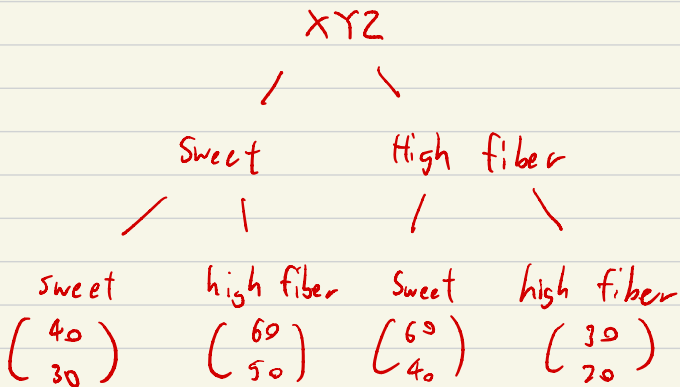 XYZ
Sweet High fiber
sweet high fiber Sweet high fiber
(40 30) (60 50) (60 40) (30 20)